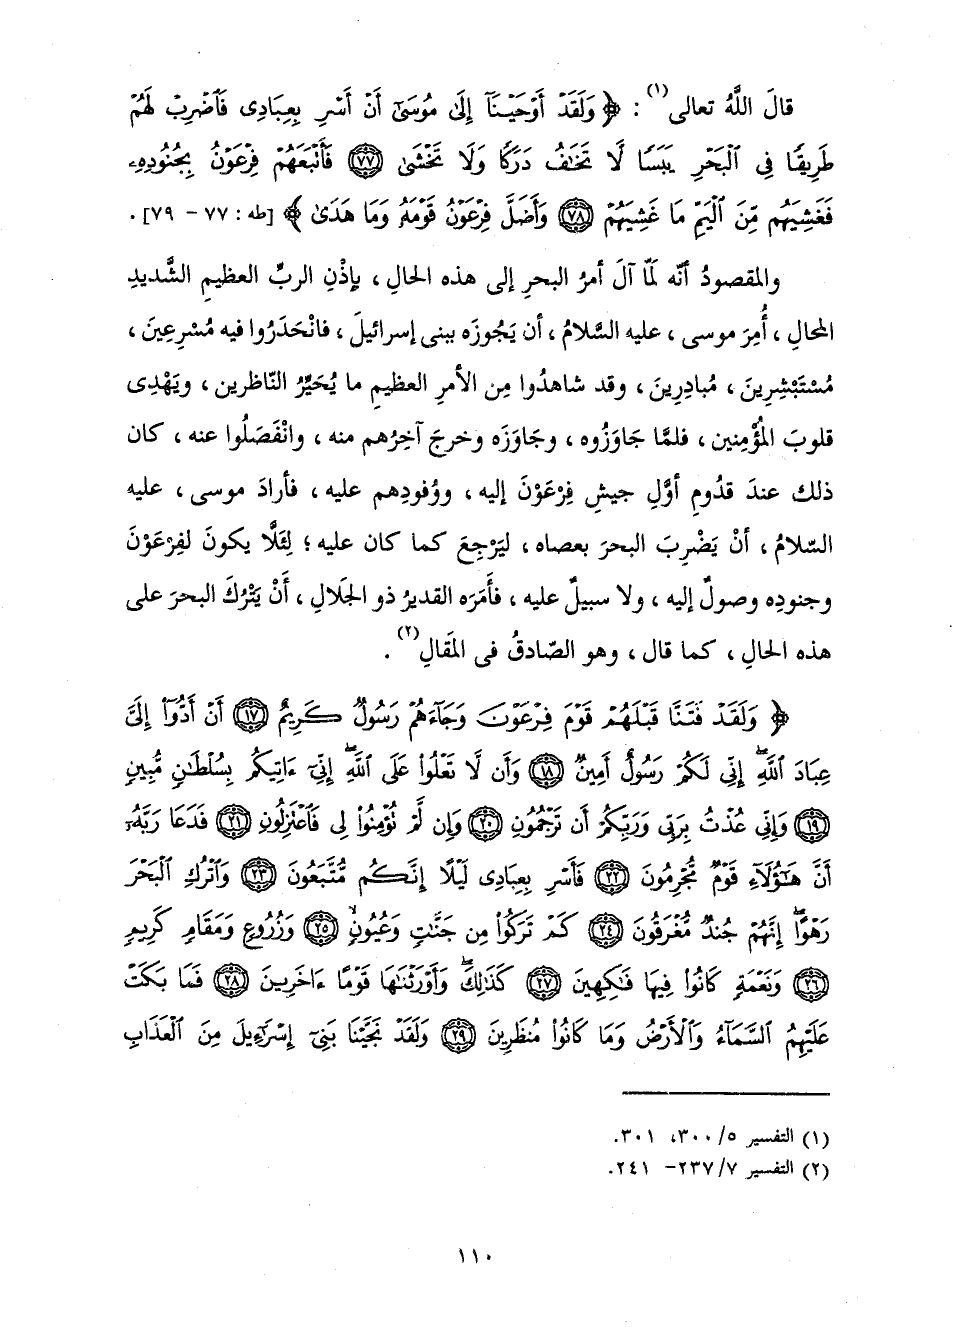 قالَ اللَّهُ تعالى(١) : ﴿ وَلَقَدْ أَوْحَيْنَآ إِلَىٰ مُوسَىٰٓ أَنْ أَسْرِ بِعِبَادِى فَٱضْرِبْ لَهُمْ
طَرِيقًا فِى ٱلْبَحْرِ يَبَسًا لَّا تَخَـٰفُ دَرَكًا وَلَا تَخْشَىٰ ﴿٧٧﴾ فَأَتْبَعَهُمْ فِرْعَوْنُ بِجُنُودِهِۦ
فَغَشِيَهُم مِّنَ ٱلْيَمِّ مَا غَشِيَهُمْ ﴿٧٨﴾ وَأَضَلَّ فِرْعَوْنُ قَوْمَهُۥ وَمَا هَدَىٰ ﴾ [طه : ٧٧ - ٧٩] .
والمقصودُ أنَّه لمّا آلَ أمرُ البحرِ إلى هذه الحالِ ، بإذْنِ الربِّ العظيمِ الشَّديدِ
المحالِ ، أُمِرَ موسى ، عليه السَّلامُ ، أن يَجُوزَه ببنى إسرائيلَ ، فانْحَدَرُوا فيه مُسْرِعِينَ ،
مُسْتَبْشِرِينَ ، مُبادِرِينَ ، وقد شاهدُوا مِن الأمرِ العظيمِ ما يُحَيِّرُ النّاظرين ، ويَهْدِى
قلوبَ المُؤْمِنين ، فلمَّا جَاوَزُوه ، وجَاوَزَه وخرجَ آخِرُهم منه ، وانْفَصَلُوا عنه ، كان
ذلك عندَ قدُومِ أوَّلِ جيشِ فِرْعَوْنَ إليه ، ووُفودِهم عليه ، فأرادَ موسى ، عليه
السّلامُ ، أنْ يَضْرِبَ البحرَ بعصاه ، ليَرْجِعَ كما كان عليه ؛ لِئَلَّا يكونَ لفِرْعَوْنَ
وجنودِه وصولٌ إليه ، ولا سبيلٌ عليه ، فأَمَرَه القديرُ ذو الجَلالِ ، أَنْ يَتْرُكَ البحرَ على
هذه الحالِ ، كما قال ، وهو الصّادقُ فى المقَالِ(٢) .
﴿ وَلَقَدْ فَتَنَّا قَبْلَهُمْ قَوْمَ فِرْعَوْنَ وَجَآءَهُمْ رَسُولٌ كَرِيمٌ ﴿١٧﴾ أَنْ أَدُّوٓا۟ إِلَىَّ
عِبَادَ ٱللَّهِ ۖ إِنِّى لَكُمْ رَسُولٌ أَمِينٌ ﴿١٨﴾ وَأَن لَّا تَعْلُوا۟ عَلَى ٱللَّهِ ۖ إِنِّىٓ ءَاتِيكُم بِسُلْطَـٰنٍ مُّبِينٍ
﴿١٩﴾ وَإِنِّى عُذْتُ بِرَبِّى وَرَبِّكُمْ أَن تَرْجُمُونِ ﴿٢٠﴾ وَإِن لَّمْ تُؤْمِنُوا۟ لِى فَٱعْتَزِلُونِ ﴿٢١﴾ فَدَعَا رَبَّهُۥٓ
أَنَّ هَـٰٓؤُلَآءِ قَوْمٌ مُّجْرِمُونَ ﴿٢٢﴾ فَأَسْرِ بِعِبَادِى لَيْلًا إِنَّكُم مُّتَّبَعُونَ ﴿٢٣﴾ وَٱتْرُكِ ٱلْبَحْرَ
رَهْوًا ۖ إِنَّهُمْ جُندٌ مُّغْرَقُونَ ﴿٢٤﴾ كَمْ تَرَكُوا۟ مِن جَنَّـٰتٍ وَعُيُونٍ ﴿٢٥﴾ وَزُرُوعٍ وَمَقَامٍ كَرِيمٍ
﴿٢٦﴾ وَنَعْمَةٍ كَانُوا۟ فِيهَا فَـٰكِهِينَ ﴿٢٧﴾ كَذَٰلِكَ ۖ وَأَوْرَثْنَـٰهَا قَوْمًا ءَاخَرِينَ ﴿٢٨﴾ فَمَا بَكَتْ
عَلَيْهِمُ ٱلسَّمَآءُ وَٱلْأَرْضُ وَمَا كَانُوا۟ مُنظَرِينَ ﴿٢٩﴾ وَلَقَدْ نَجَّيْنَا بَنِىٓ إِسْرَٰٓءِيلَ مِنَ ٱلْعَذَابِ
(١) التفسير ٥/ ٣٠٠، ٣٠١.
(٢) التفسير ٧/ ٢٣٧ - ٢٤١.
١١٠